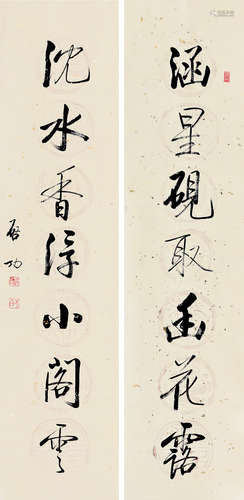 涵星砚取幽花露
沈水香浮小阁云
启功